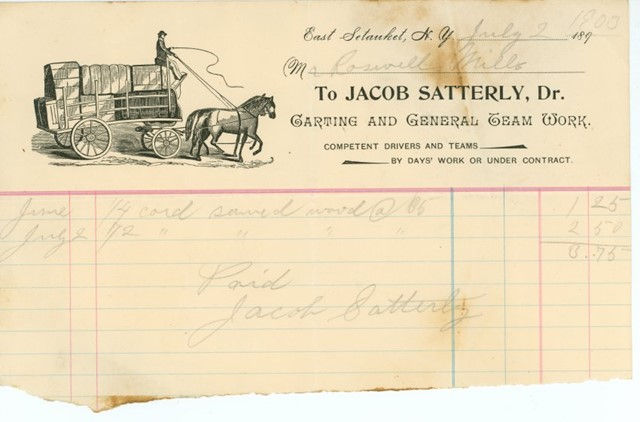 East Setauket, N. Y. July 2 1903 189
Mr Roswell Mills
To JACOB SATTERLY, Dr.
CARTING AND GENERAL TEAM WORK.
COMPETENT DRIVERS AND TEAMS
BY DAYS' WORK OR UNDER CONTRACT.
June 1/4 cord sawed wood @ $5 1 25
July 2 1/2 " " " " 2 50
3.75
Paid
Jacob Satterly